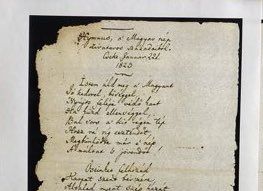 Hymnus, a' Magyar nép
zivataros századaiból.
Cseke Januar. 22d.
1823
Isten áldd meg a' Magyart
Jó kedvvel, bőséggel,
Nyújts feléje védő kart
Ha küzd ellenséggel;
Bal sors a' kit régen tép
Hozz rá víg esztendőt,
Megbünhödte már e' nép
A' multat 's jövendőt!
Őseinket felhozád
Kárpát szent bérczére
Általad nyert szép hazát